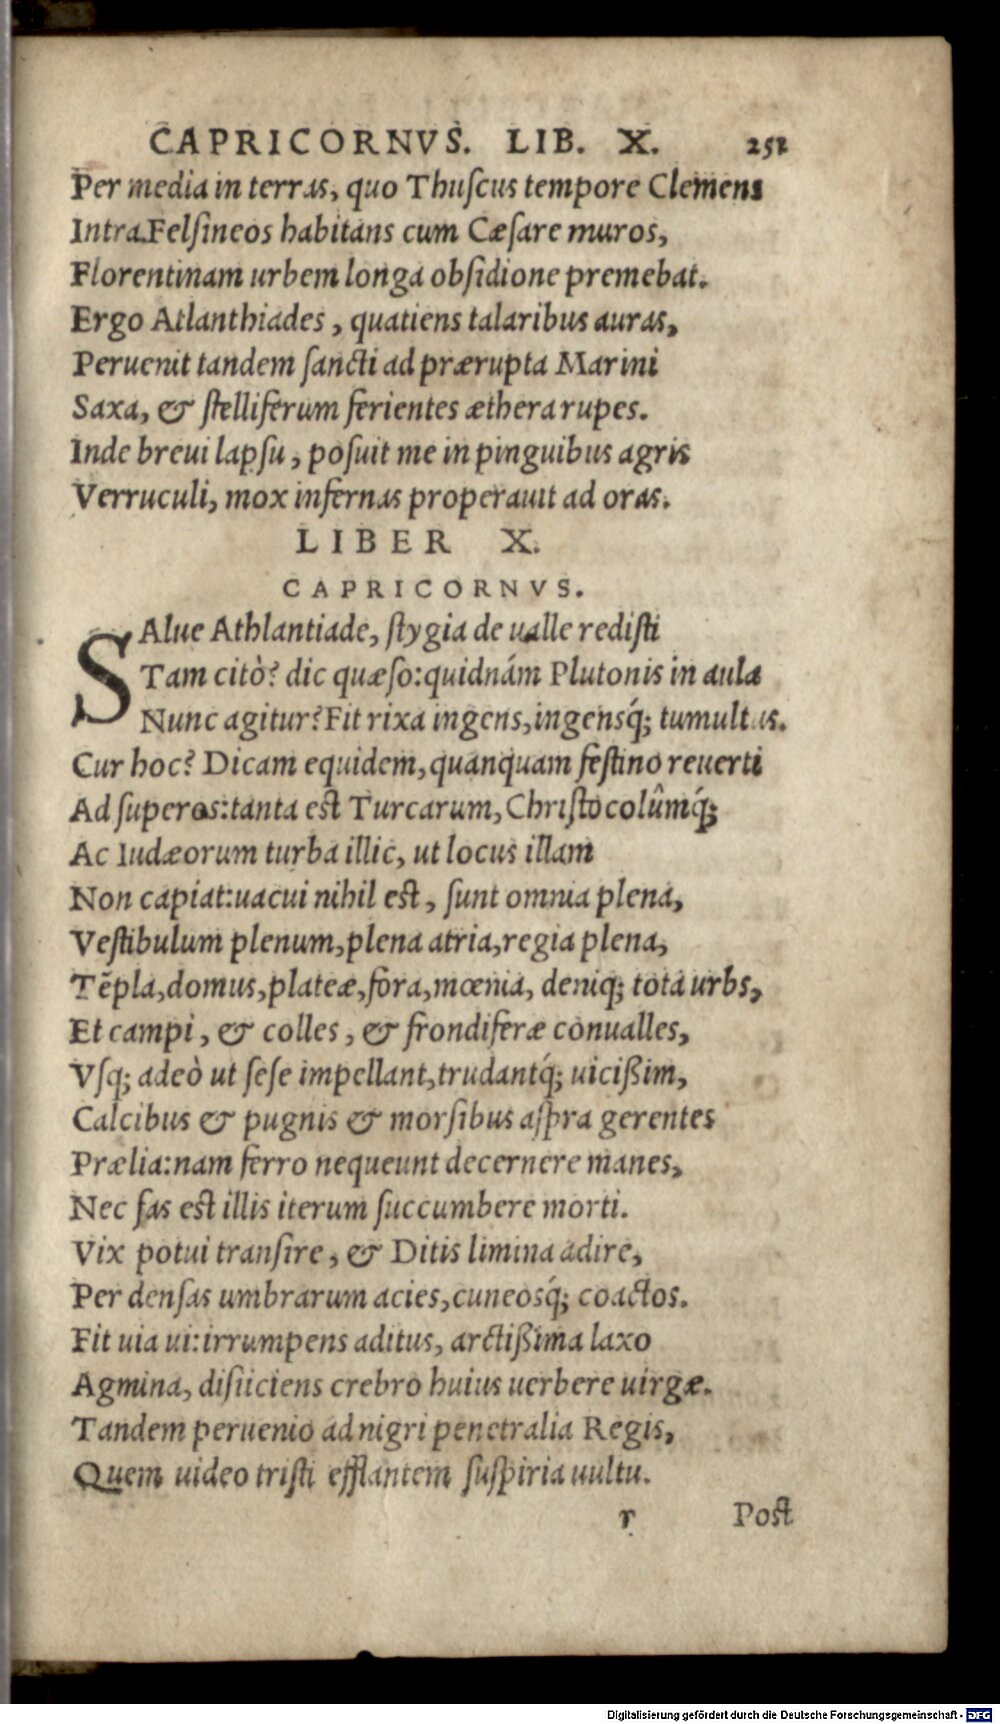 CAPRICORNVS. LIB. X. 251
Per media in terras, quo Thuſcus tempore Clemens
Intra Felſineos habitans cum Cæſare muros,
Florentinam urbem longa obſidione premebat.
Ergo Atlanthiades, quatiens talaribus auras,
Peruenit tandem ſancti ad prærupta Marini
Saxa, & ſtelliferum ferientes æthera rupes.
Inde breui lapſu, poſuit me in pinguibus agris
Verruculi, mox infernas properauit ad oras.
LIBER X.
CAPRICORNVS.
SAlue Athlantiade, ſtygia de ualle rediſti
Tam citò? dic quæſo: quidnám Plutonis in aula
Nunc agitur? Fit rixa ingens, ingensq́; tumultus.
Cur hoc? Dicam equidem, quanquam feſtino reuerti
Ad ſuperos: tanta eſt Turcarum, Chriſtocolûmq́;
Ac Iudæorum turba illic, ut locus illam
Non capiat: uacui nihil eſt, ſunt omnia plena,
Veſtibulum plenum, plena atria, regia plena,
Tēpla, domus, plateæ, fora, mœnia, deniq; tota urbs,
Et campi, & colles, & frondiferæ conualles,
Vſq; adeò ut ſeſe impellant, trudantq́; uicißim,
Calcibus & pugnis & morſibus aſpra gerentes
Prælia: nam ferro nequeunt decernere manes,
Nec fas eſt illis iterum ſuccumbere morti.
Vix potui tranſire, & Ditis limina adire,
Per denſas umbrarum acies, cuneosq́; coactos.
Fit uia ui: irrumpens aditus, arctißima laxo
Agmina, diſiiciens crebro huius uerbere uirgæ.
Tandem peruenio ad nigri penetralia Regis,
Quem uideo triſti efflantem ſuſpiria uultu.
r Poſt
Digitalisierung gefördert durch die Deutsche Forschungsgemeinschaft - DFG